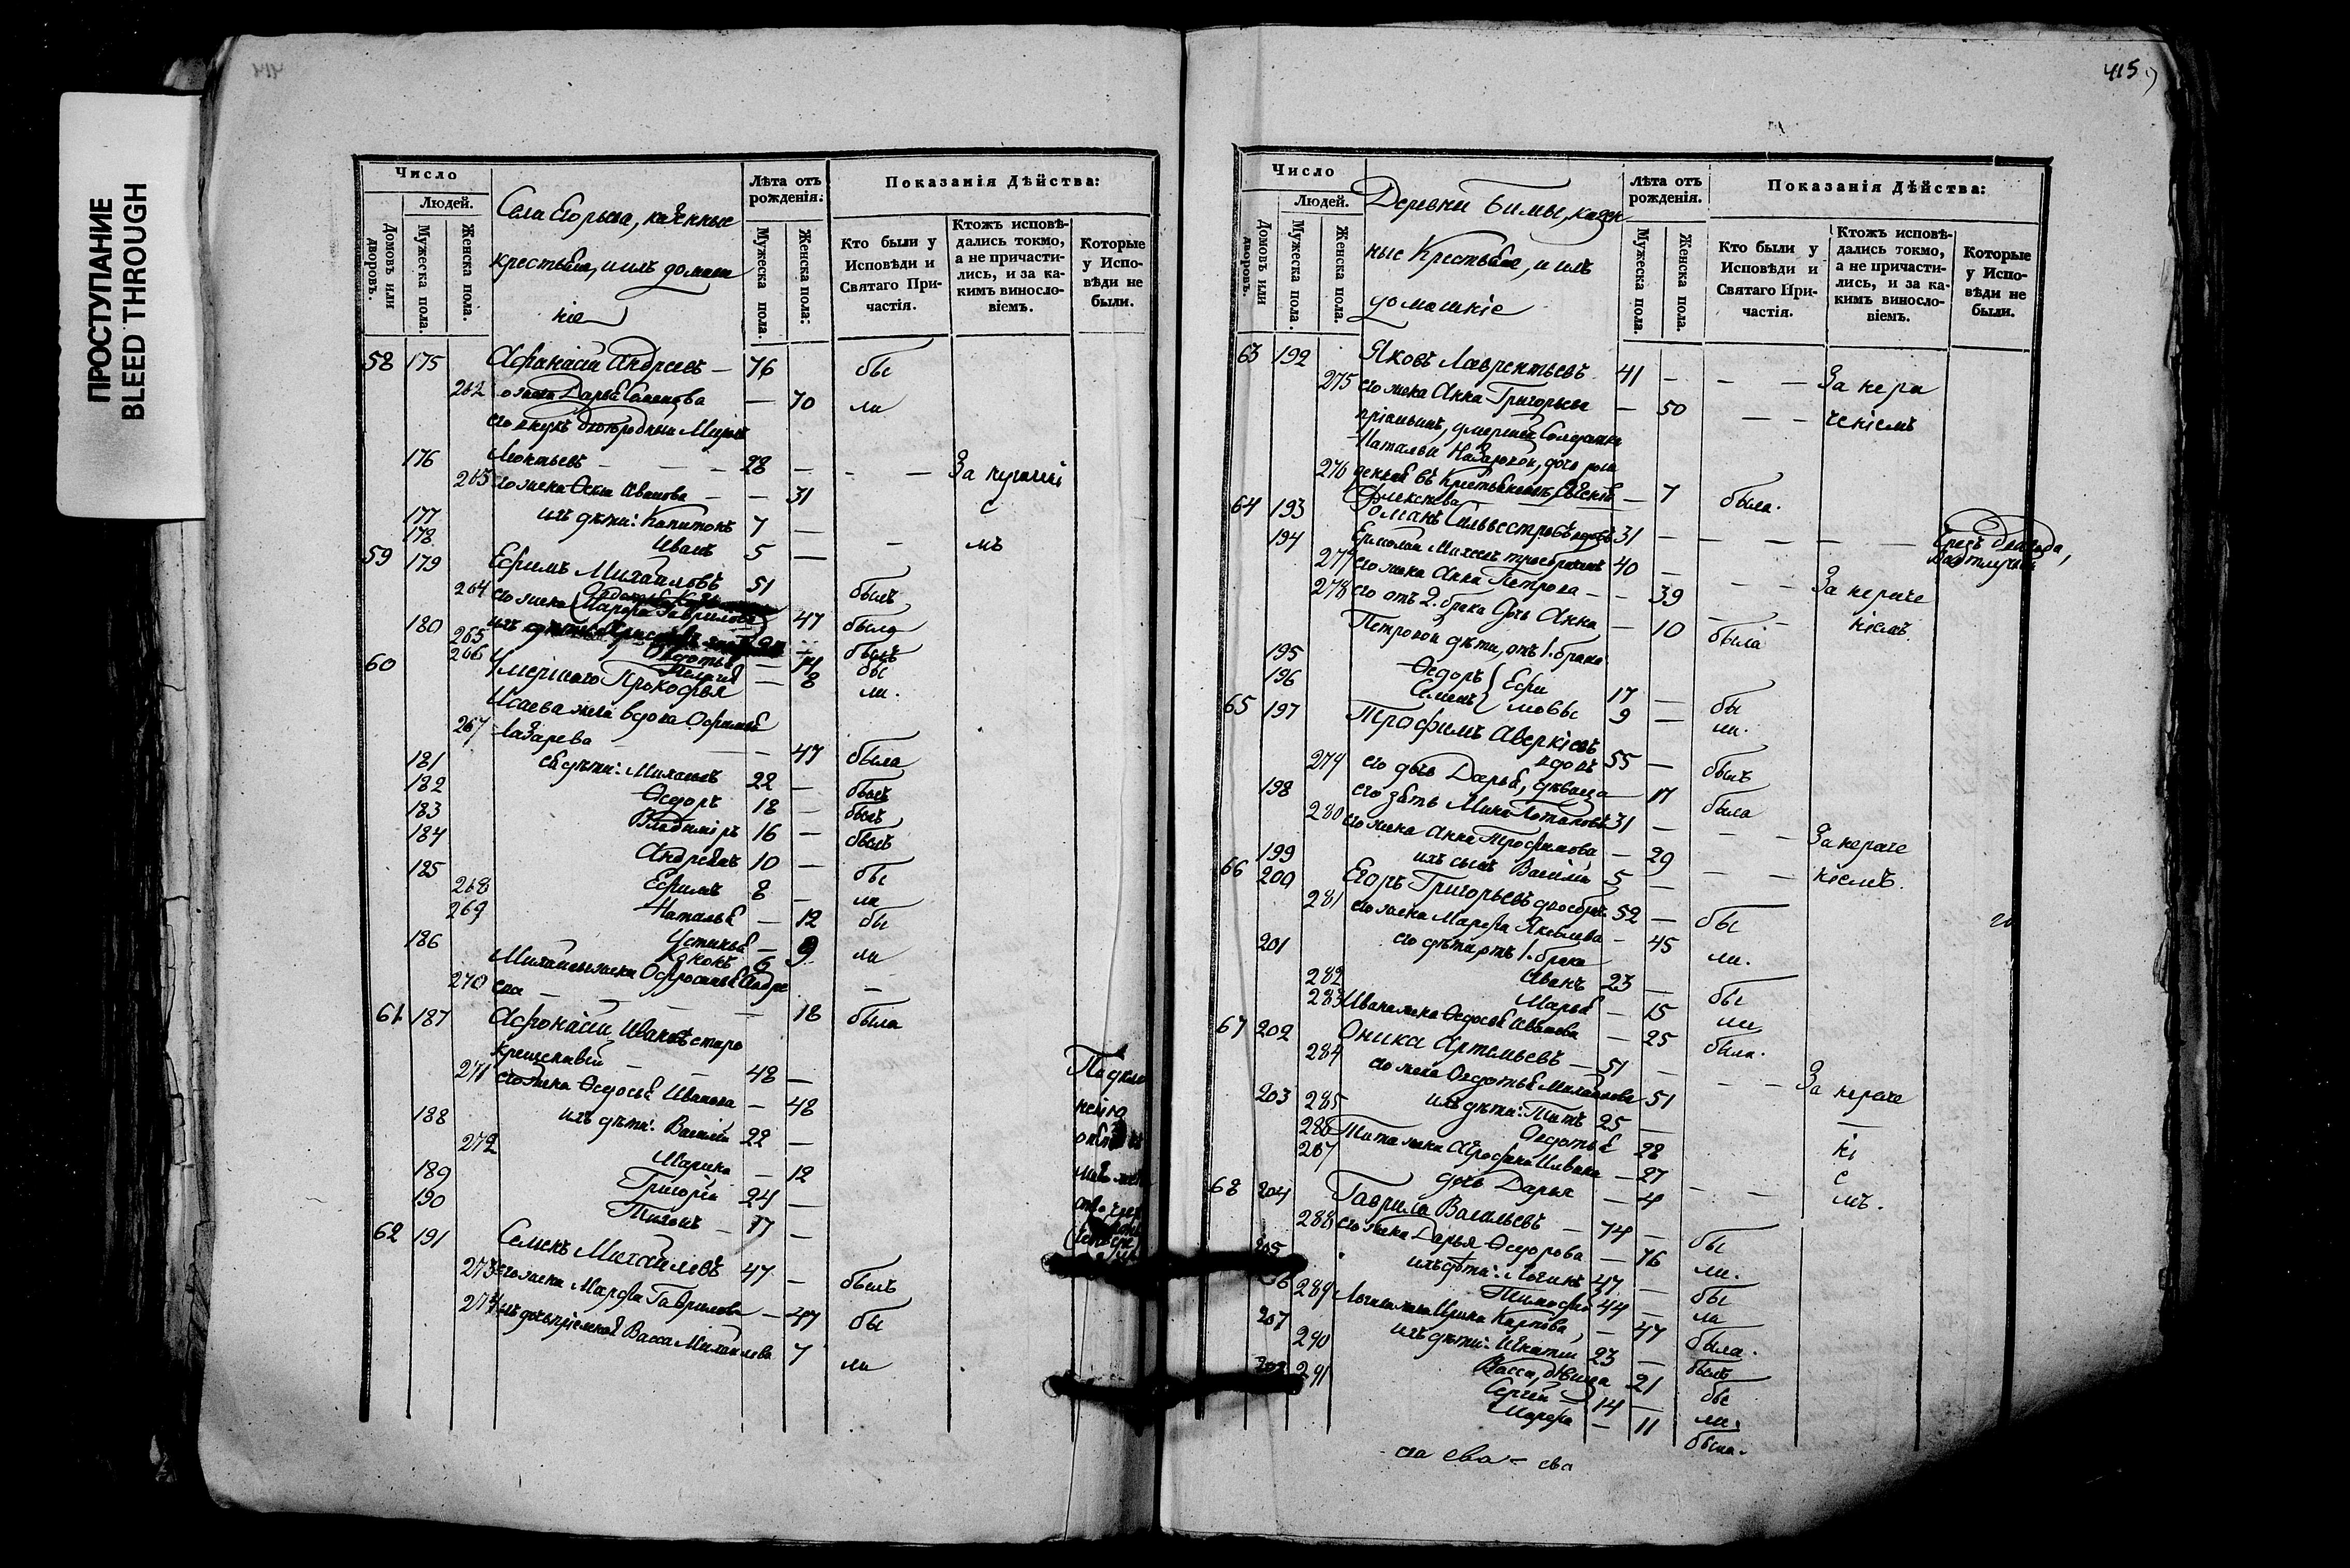 ПРОСТУПАНИЕ
BLEED THROUGH
414
Число
Людей.
Домовъ или дворовъ.
Мужеска пола.
Женска пола.
Села Егорьева, казенные
крестьяне, и ихъ домаш
ніе
Лѣта отъ рожденія:
Мужеска пола
Женска пола:
Показанія Дѣйства:
Кто были у Исповѣди и Святаго Причастія.
Ктожъ исповѣдались токмо, а не причастились, и за какимъ винословіемъ.
Которые у Исповѣди не были.
58 175 Афанасій Андреевъ — 76 бы
262 его жена Дарья Семенова — 70 ли
его внукъ двоюродный Миронъ
176 Леонтьевъ — — — 28 — — — За нераченіе
263 его жена Ѳекла Иванова — — 31 с
177 ихъ дѣти: Капитонъ 7 —
178 Иванъ 5 — — мъ
59 179 Ефимъ Михайловъ 51 былъ
264 его жена Марфа Гаврилова 47 была
180 ихъ дѣти былъ
265 Авдотья — 14 бы
266 Пелагея — 8 ли.
60 Умершаго Прокофья
Исаева жена вдова Ефимья
267 Лазарева — 47 была
181 ея дѣти: Михаилъ 22 — былъ
182 Ѳедоръ 18 — былъ
183 Владиміръ 16 — былъ
184 Андреянъ 10 — бы
185 Ефимъ 8 — ли
268 Наталья — 12 бы
269 Устинья — 9 ли
186 Кононъ 6 —
Михайлы жена Ефросинья Андре
270 ева — — — 18 была
61 187 Афонасій Ивановъ старо
крещенный — — 48 — По укло
271 его жена Ѳедосья Иванова — 48 ненію
188 ихъ дѣти: Василій 22 —
272 Марина — 12
189 Григорій 24 —
190 Титъ — 17 —
62 191 Семенъ Михайловъ 47 — былъ
273 его жена Марфа Гаврилова — 47 бы
274 ихъ дочь пріемная Васса Михайлова 7 ли
415
Число
Людей.
Домовъ или дворовъ.
Мужеска пола.
Женска пола.
Деревни Бимы, казен
ные Крестьяне, и ихъ
домашніе
Лѣта отъ рожденія.
Мужеска пола.
Женска пола.
Показанія Дѣйства:
Кто были у Исповѣди и Святаго Причастія.
Ктожъ исповѣдались токмо, а не причастились, и за какимъ винословіемъ.
Которые у Исповѣди не были.
63 192 Яковъ Лаврентьевъ 41 — — — За нера
275 его жена Анна Григорьева — 50 — — ченіемъ
пріемышъ, умершей Солдатки
Натальи Назаровой, дочь рож
276 денная въ — 7 была.
Алексѣева
64 193 Романъ Сильвестровъ вдовъ 31 — — — — Чрезъ два года,
въ отлучкѣ
194 Ермолай Михеевъ троебрачный 40 —
277 его жена Анна Петрова — — 39 — — За нераче
278 его отъ 2. брака дочь Анна — 10 была ніемъ.
Петровой дѣти, отъ 1. брака
195 Ѳедоръ } Ефи 17 — бы
196 Семенъ } мовы 9 — ли.
65 197 Трофимъ Аверкіевъ
вдовъ 55 — былъ
279 его дочь Дарья, дѣвица 17 была
198 его зять Мина Потаповъ 31 — — — За нераче
280 его жена Анна Трофимова — 29
199 ихъ сынъ Василій 5 — — — ніемъ.
66 200 Егоръ Григорьевъ двоебрач. 52 — бы
281 его жена Марфа Яковлева — 45 ли.
его дѣти отъ 1. брака
201 Иванъ 23 — бы
282 Марья — 15 ли
283 Ивана жена Ѳедосья Иванова — 25 была.
67 202 Оника Артемьевъ — 51 — — — За нераче
284 его жена Авдотья Михайлова 51
203 285 ихъ дѣти: Титъ 25 — —
286 Авдотья 28 ні
287 Тита жена Афросинья Иванова — 27 е
дочь Дарья — 4 — — мъ.
68 204 Гаврила Васильевъ — 74 — бы
288 его жена Дарья Ѳедорова — 76 ли.
205 ихъ дѣти: Логинъ 47 — бы
206 Тимофей 44 — ли
289 Логина жена Ирина Карпова — 47 была.
207 ихъ дѣти: Игнатій 23 — былъ
290 Васса, дѣвица 21 бы
208 Сергей — 14 — ли.
291 Марфа — 11 была.